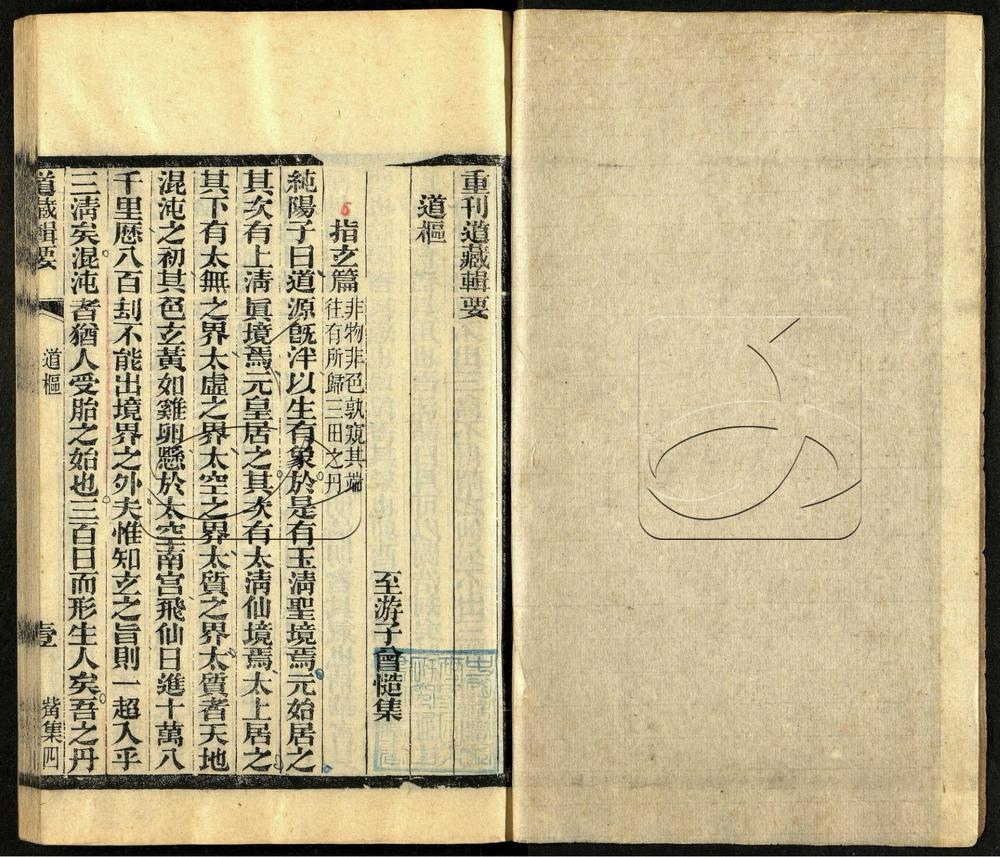 重刊道藏輯要
道樞
至游子曾慥集
指玄篇
非物非色孰窺其端
往有所歸三田之丹
純陽子曰道源旣泮以生有象於是有玉淸聖境焉元始居之
其次有上淸眞境焉元皇居之其次有太淸仙境焉太上居之
其下有太無之界太虛之界太空之界太質之界太質者天地
混沌之初其色玄黃如雞卵懸於太空南宫飛仙日進十萬八
千里歷八百刦不能出境界之外夫惟知玄之旨則一超入乎
三淸矣混沌者猶人受胎之始也三百日而形生人矣吾之丹
道藏輯要
道樞
壹
觜集四